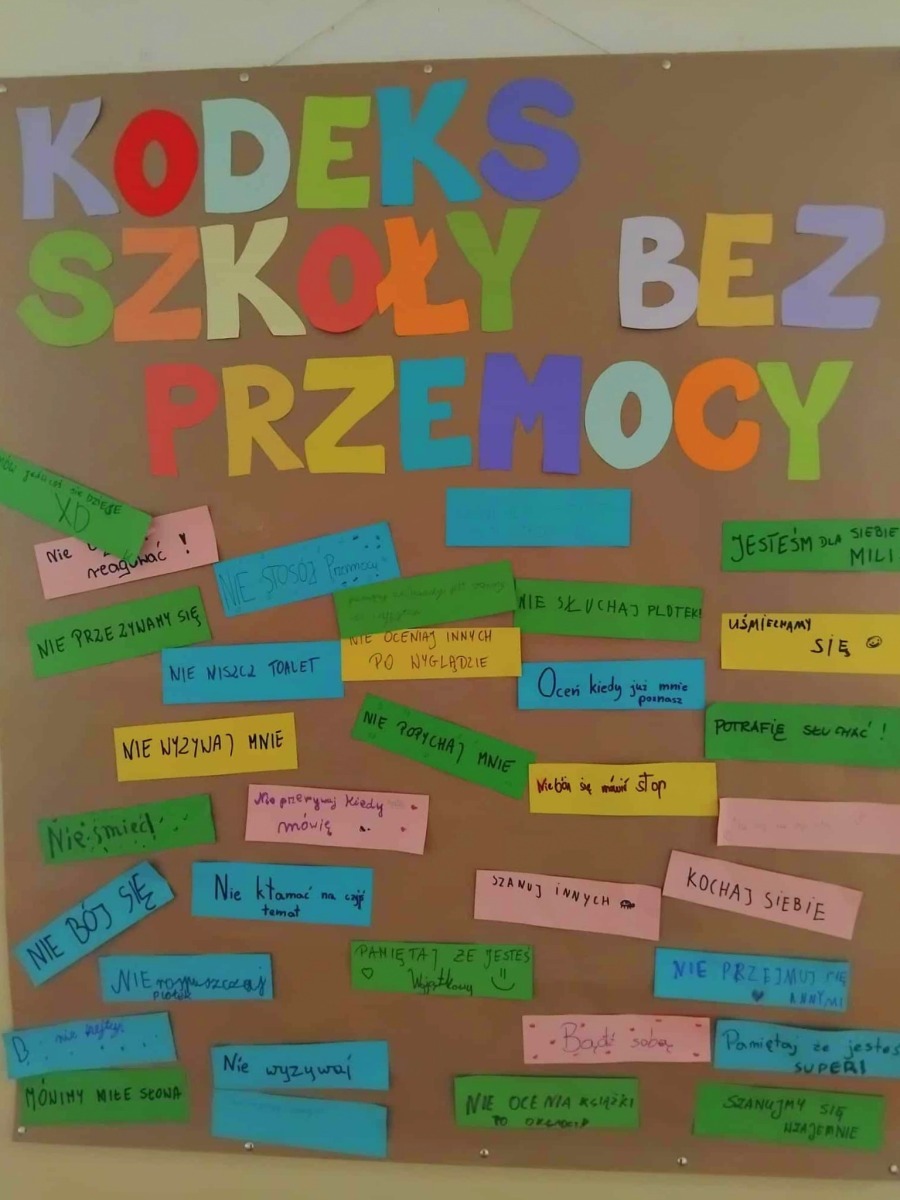 KODEKS
SZKOŁY BEZ
PRZEMOCY
się DZIEJE
XD
Nie
reagować !
NIE STOSÓJ Przemocy
JESTEŚM DLA SIEBIE
MILI
NIE PRZEZYWAMY SIĘ
NIE SŁUCHAJ PLOTEK!
UŚMIECHAMY
SIĘ
NIE NISZCZ TOALET
NIE OCENIAJ INNYCH
PO WYGLĄDZIE
Oceń kiedy już mnie
poznasz
POTRAFIĘ SŁUCHAĆ !
NIE WYZYWAJ MNIE
NIE POPYCHAJ MNIE
Niebój się mówić stop
Nie śmieć!
Nie przerywaj kiedy
mówię
NIE BÓJ SIĘ
Nie kłamać na czyjś
temat
SZANUJ INNYCH
KOCHAJ SIEBIE
NIE rozpuszczaj
plotek
PAMIĘTAJ ŻE JESTEŚ
Wyjątkowy
NIE PRZEJMUJ SIĘ
INNYMI
B nie hejtuj
Bądź sobą
Pamiętaj że jesteś
SUPER!
Nie wyzywaj
MÓNIMY MIŁE SŁOWA
NIE OCENIA KSIĄŻKI
PO
SZANUJMY SIĘ
WZAJEMNIE